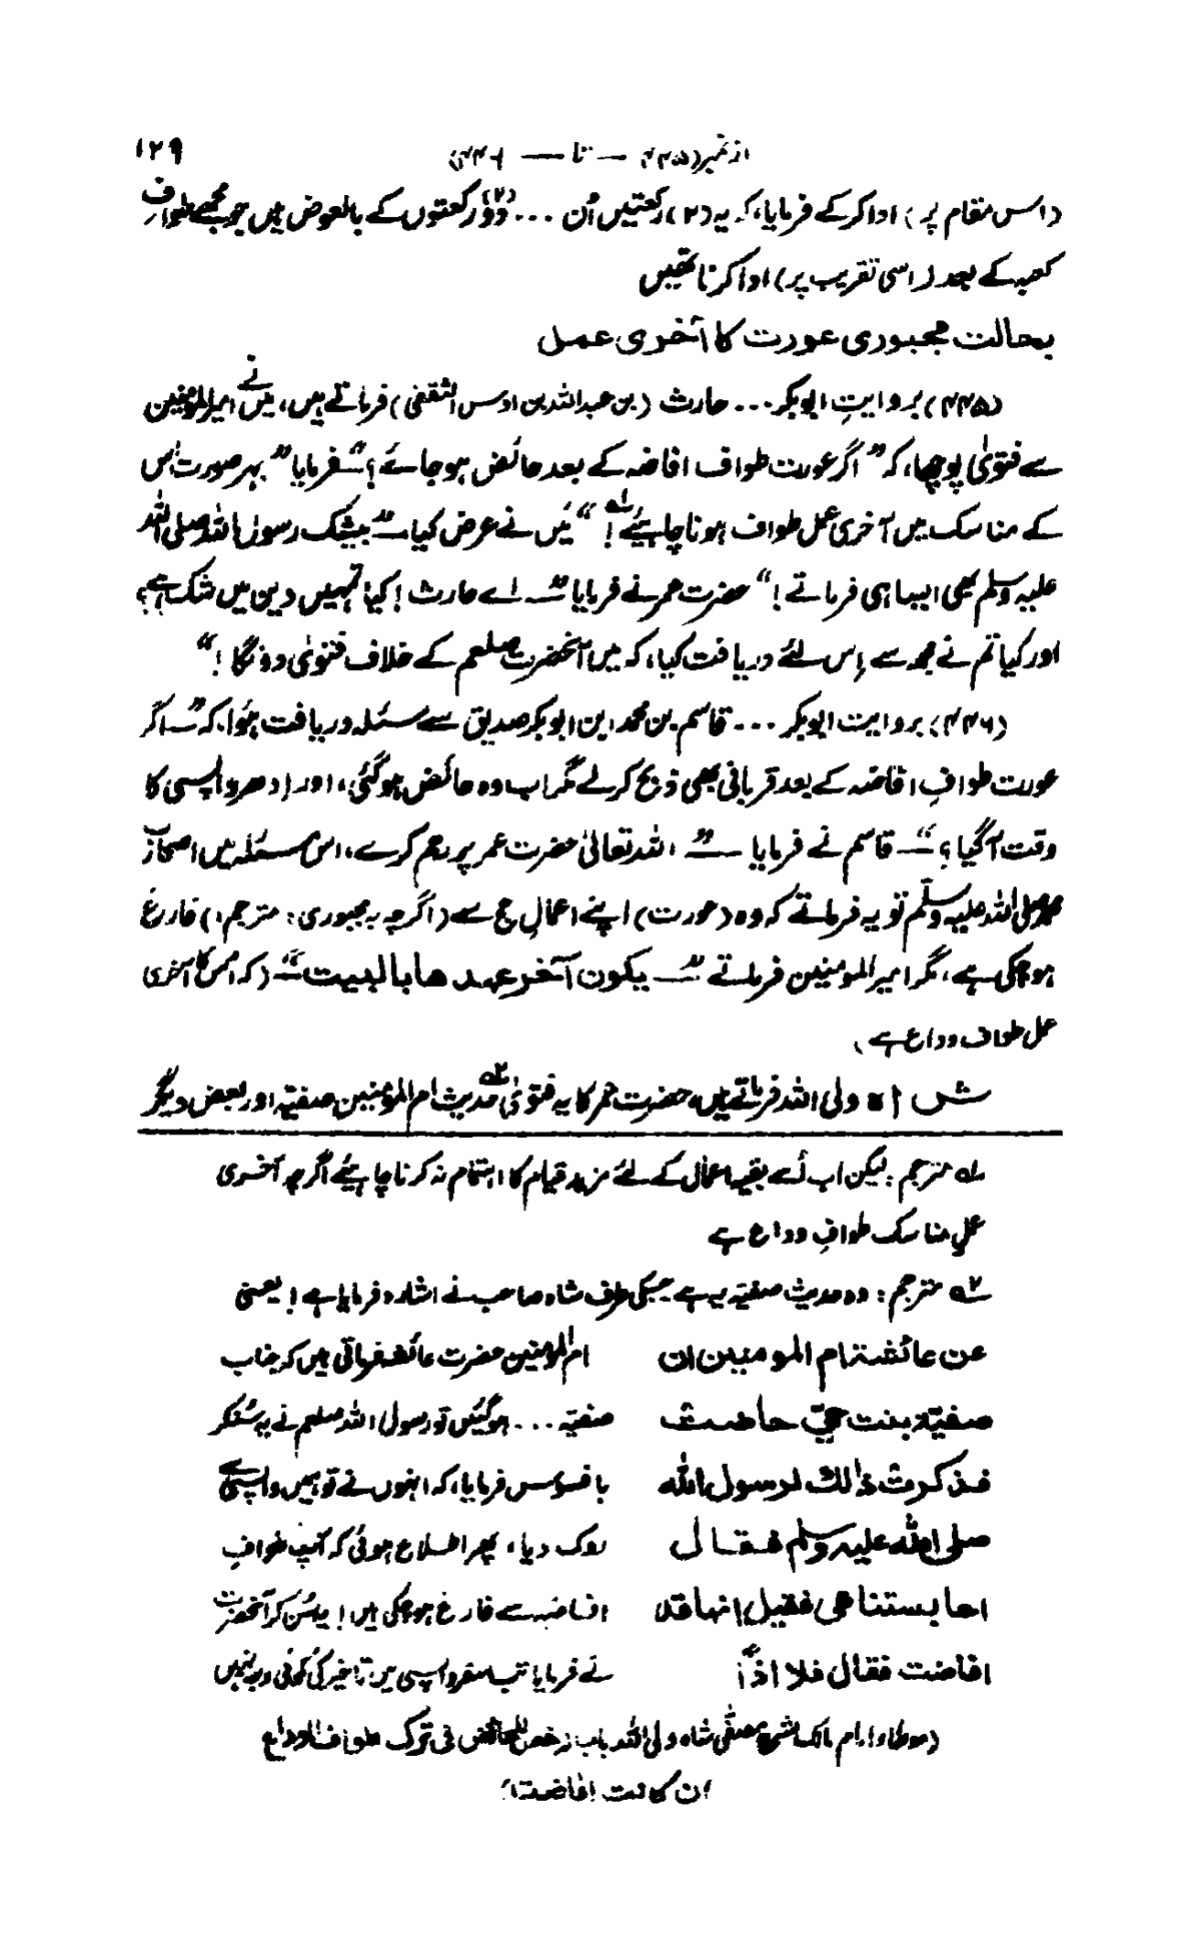 ۱۲۹
از نمبر (۴۴۵ — تا — ۴۴۶)
(اس مقام پر) ادا کر کے فرمایا، کہ یہ (۲) رکعتیں اُن ... دو (۲) رکعتوں کے بالعوض ہیں جو مجھے طوافِ
کعبہ کے بعد (اسی تقریب پر) ادا کرنا تھیں
بحالت مجبوری عورت کا آخری عمل
(۴۴۵) بروایتِ ابوبکر ... حارث (بن عبداللہ بن اوس الثقفی) فرماتے ہیں، میں نے امیر المومنین
سے فتویٰ پوچھا، کہ ”اگر عورت طواف افاضہ کے بعد حائض ہو جائے؟“ — فرمایا ”بہر صورت اس
کے مناسک میں آخری عمل طواف ہونا چاہیئے!“ ۱ میں نے عرض کیا — ”بیشک رسول اللہ صلی اللہ
علیہ وسلم بھی ایسا ہی فرماتے!“ حضرت عمر نے فرمایا — ”اے حارث! کیا تمہیں دین میں شک ہے؟
اور کیا تم نے مجھ سے اِس لئے دریافت کیا، کہ میں آنحضرت صلعم کے خلاف فتویٰ دونگا!“
(۴۴۶) بروایت ابوبکر ... قاسم بن محمد ابن ابوبکر صدیق سے مسئلہ دریافت ہوا، کہ — ”اگر
عورت طوافِ افاضہ کے بعد قربانی بھی ذبح کر لے مگر اب وہ حائض ہو گئی، اور اِدھر واپسی کا
وقت آ گیا؟“ — قاسم نے فرمایا — ”اللہ تعالیٰ حضرت عمر پر رحم کرے، اس مسئلہ میں اصحاب
محمد صلی اللہ علیہ وسلم تو یہ فرماتے کہ وہ (عورت) اپنے اعمالِ حج سے (اگرچہ بہ مجبوری: مترجم!) فارغ
ہو چکی ہے، مگر امیر المومنین فرماتے — ”یکون آخر عہدھا بالبیت“ — (کہ اس کا آخری
عمل طواف وداع ہے)
ش ۵۱ ولی اللہ فرماتے ہیں، حضرت عمر کا یہ فتویٰ ۲ حدیث ام المومنین صفیہ اور بعض دیگر
۱ مترجم: لیکن اب اُسے بقیہ اعمال کے لئے مزید قیام کا اہتمام نہ کرنا چاہیئے اگرچہ آخری
عمل مناسک طوافِ وداع ہے
۲ مترجم: وہ حدیث صفیہ یہ ہے جسکی طرف شاہ صاحب نے اشارہ فرمایا ہے! یعنی
عن عائشۃ ام المومنین ان ام المومنین حضرت عائشہ فرماتی ہیں کہ جناب
صفیۃ بنت حیّ حاضت صفیہ ... ہو گئیں تو رسول اللہ صلعم نے یہ سُنکر
فذکرت ذالک لرسول اللہ بافسوس فرمایا، کہ انہوں نے تو ہمیں واپسی سے
صلی اللہ علیہ وسلم فقال روک دیا، پھر اطلاع ہوئی کہ آپ طوافِ
احابستنا ھی فقیل انھا قد افاضہ سے فارغ ہو چکی ہیں! یہ سُن کر آنحضرت
افاضت فقال فلا اذًا نے فرمایا تب سفر واپسی میں تاخیر کی کوئی وجہ نہیں
(موطا امام مالک بشرح مصفّٰی شاہ ولی اللہ باب رخص للحائض فی ترک طواف الوداع
ان کانت افاضت)